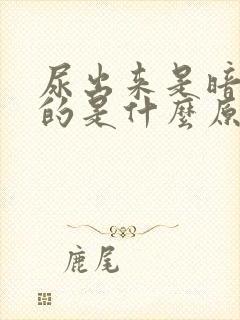 尿出来是暗
的是什麼原
鹿尾